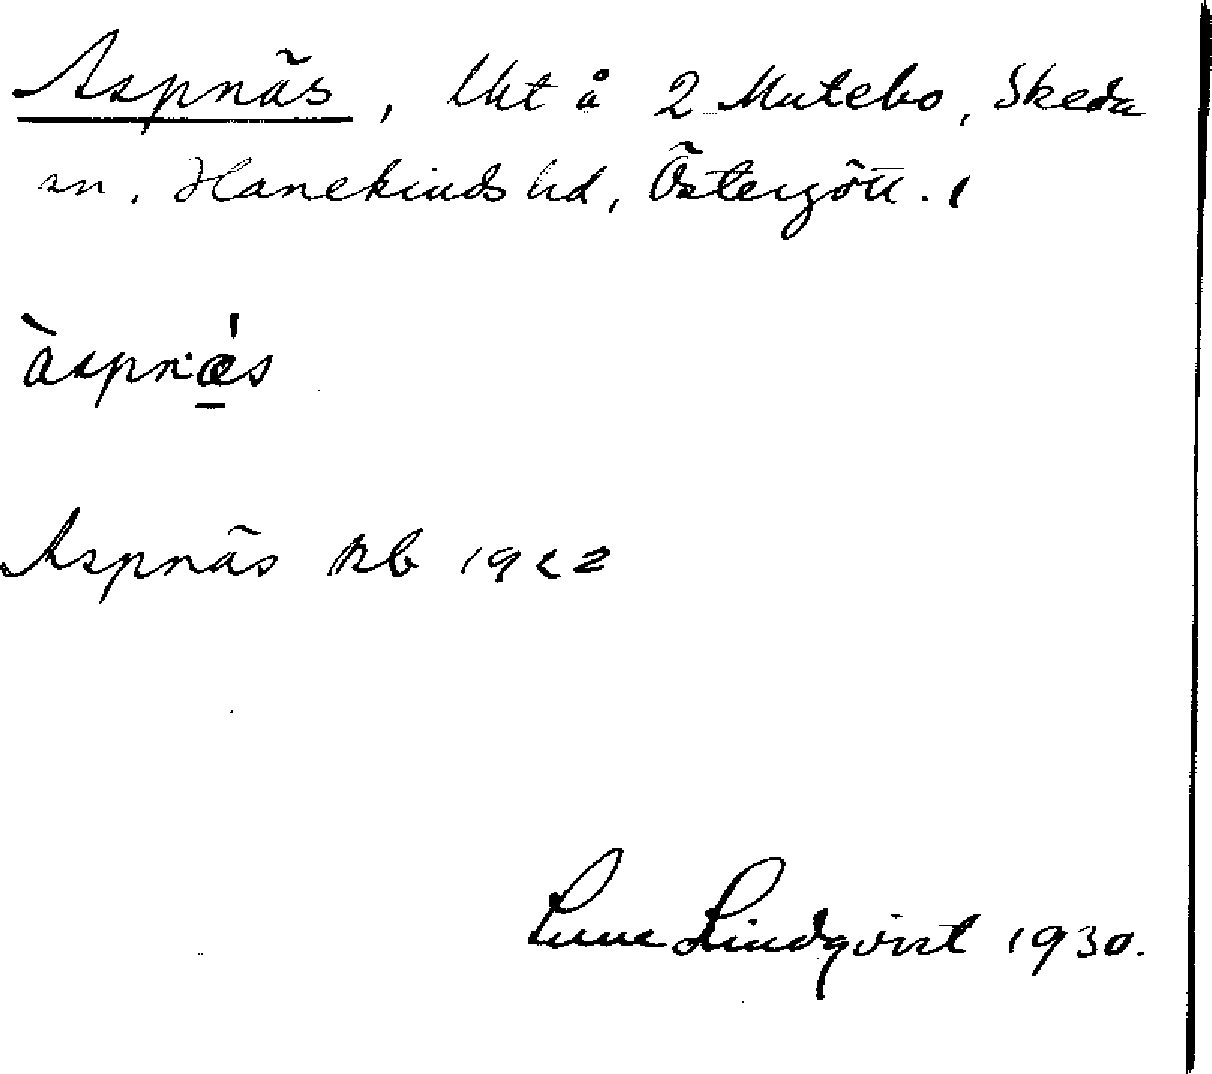 Aspnäs, lht å 2 Mutebo, Skeda
sn, Hanekinds hd, Östergötl.
àspnæ̠̍s
Aspnäs kb 1922
Sune Lindqvist 1930.